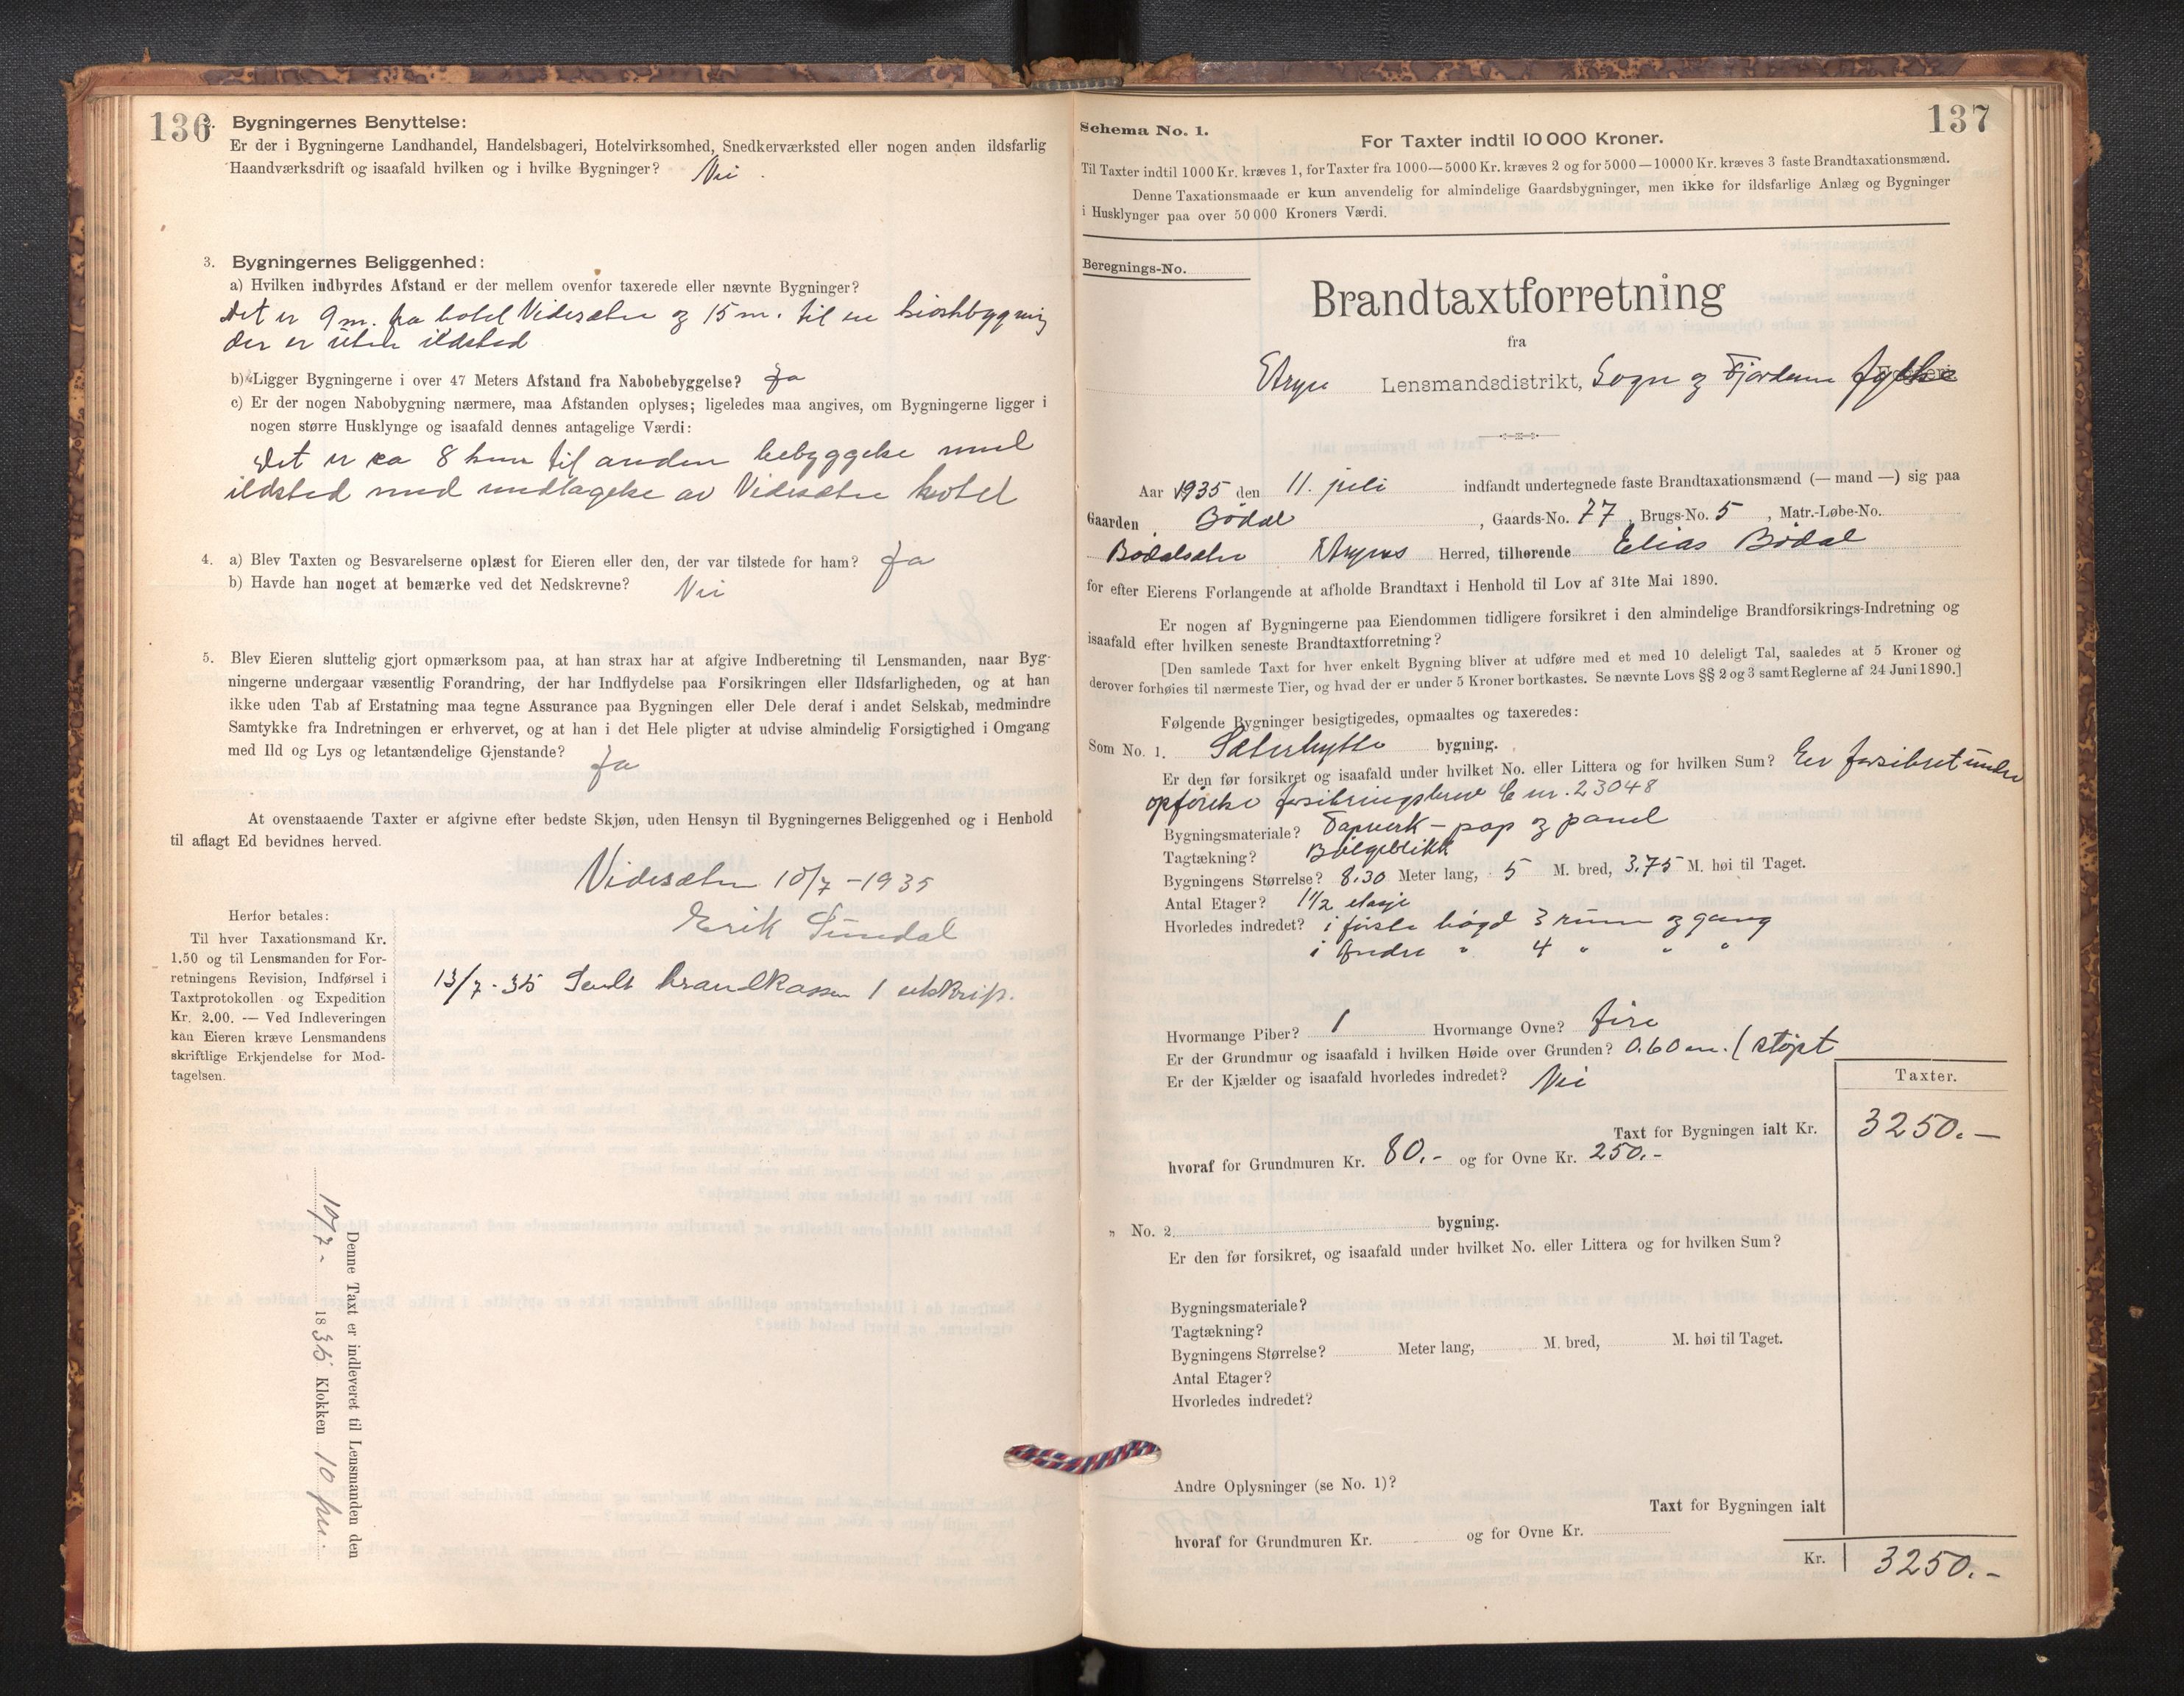 136
2. Bygningernes Benyttelse:
Er der i Bygningerne Landhandel, Handelsbageri, Hotelvirksomhed, Snedkerværksted eller nogen anden ildsfarlig
Haandværksdrift og isaafald hvilken og i hvilke Bygninger? Nei.
3. Bygningernes Beliggenhed:
a) Hvilken indbyrdes Afstand er der mellem ovenfor taxerede eller nævnte Bygninger?
Det er 9 m. fra hotel Videsæter og 15 m. til en kioskbygning
der er uten ildsted
b) Ligger Bygningerne i over 47 Meters Afstand fra Nabobebyggelse? Ja
c) Er der nogen Nabobygning nærmere, maa Afstanden oplyses; ligeledes maa angives, om Bygningerne ligger i
nogen større Husklynge og isaafald dennes antagelige Værdi:
Det er ca 8 km til anden bebyggelse med
ildsted med undtagelse av Videsæter hotel
4. a) Blev Taxten og Besvarelserne oplæst for Eieren eller den, der var tilstede for ham? Ja
b) Havde han noget at bemærke ved det Nedskrevne? Nei
5. Blev Eieren sluttelig gjort opmærksom paa, at han strax har at afgive Indberetning til Lensmanden, naar Byg-
ningerne undergaar væsentlig Forandring, der har Indflydelse paa Forsikringen eller Ildsfarligheden, og at han
ikke uden Tab af Erstatning maa tegne Assurance paa Bygningen eller Dele deraf i andet Selskab, medmindre
Samtykke fra Indretningen er erhvervet, og at han i det Hele pligter at udvise almindelig Forsigtighed i Omgang
med Ild og Lys og letantændelige Gjenstande? Ja
At ovenstaaende Taxter er afgivne efter bedste Skjøn, uden Hensyn til Bygningernes Beliggenhed og i Henhold
til aflagt Ed bevidnes herved.
Videsæter 10/7 - 1935
Erik Sundal
Herfor betales:
Til hver Taxationsmand Kr.
1.50 og til Lensmanden for For-
retningens Revision, Indførsel i
Taxtprotokollen og Expedition
Kr. 2.00. — Ved Indleveringen
kan Eieren kræve Lensmandens
skriftlige Erkjendelse for Mod-
tagelsen.
13/7-35 Sendt brandkassen 1 utskrift.
Denne Taxt er indleveret til Lensmanden den
10/7- 1835 Klokken 10 fm.
137
Schema No. 1.
For Taxter indtil 10000 Kroner.
Til Taxter indtil 1000 Kr. kræves 1, for Taxter fra 1000—5000 Kr. kræves 2 og for 5000—10000 Kr. kræves 3 faste Brandtaxationsmænd.
Denne Taxationsmaade er kun anvendelig for almindelige Gaardsbygninger, men ikke for ildsfarlige Anlæg og Bygninger
i Husklynger paa over 50000 Kroners Værdi.
Beregnings-No.
Brandtaxtforretning
fra
Stryn Lensmandsdistrikt, Sogn og Fjordane fylke
Aar 1935 den 11. juli indfandt undertegnede faste Brandtaxationsmænd (— mand —) sig paa
Gaarden Bødal, Gaards-No. 77, Brugs-No. 5, Matr.-Løbe-No.
Bødalsæter Stryns Herred, tilhørende Elias Bødal
for efter Eierens Forlangende at afholde Brandtaxt i Henhold til Lov af 31te Mai 1890.
Er nogen af Bygningerne paa Eiendommen tidligere forsikret i den almindelige Brandforsikrings-Indretning og
isaafald efter hvilken seneste Brandtaxtforretning?
[Den samlede Taxt for hver enkelt Bygning bliver at udføre med et med 10 deleligt Tal, saaledes at 5 Kroner og
derover forhøies til nærmeste Tier, og hvad der er under 5 Kroner bortkastes. Se nævnte Lovs §§ 2 og 3 samt Reglerne af 24 Juni 1890.]
Følgende Bygninger besigtigedes, opmaaltes og taxeredes:
Som No. 1. Sæterhytte bygning.
Er den før forsikret og isaafald under hvilket No. eller Littera og for hvilken Sum? Er forsikret under
opførelse forsikringsbrev C nr. 23048
Bygningsmateriale? Tapverk - pap og panel
Tagtækning? Bølgeblikk
Bygningens Størrelse? 8.30 Meter lang, 5 M. bred, 3.75 M. høi til Taget.
Antal Etager? 1 1/2 etasje
Hvorledes indredet? i første høgd 3 rum og gang
i andre " 4 " " "
Hvormange Piber? 1 Hvormange Ovne? fire
Er der Grundmur og isaafald i hvilken Høide over Grunden? 0.60 m. / støpt
Er der Kjælder og isaafald hvorledes indredet? Nei
Taxter.
Taxt for Bygningen ialt Kr. 3250.-
hvoraf for Grundmuren Kr. 80.- og for Ovne Kr. 250.-
" No. 2 bygning.
Er den før forsikret, og isaafald under hvilket No. eller Littera og for hvilken Sum?
Bygningsmateriale?
Tagtækning?
Bygningens Størrelse? Meter lang, M. bred, M. høi til Taget.
Antal Etager?
Hvorledes indredet?
Andre Oplysninger (se No. 1)?
Taxt for Bygningen ialt
hvoraf for Grundmuren Kr. og for Ovne Kr.
Kr. 3250.-